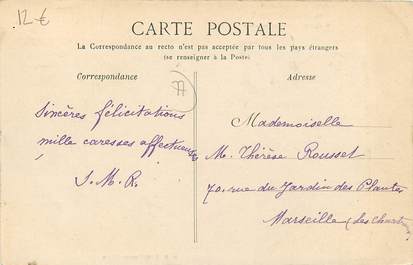 12 €
CARTE POSTALE
La Correspondance au recto n'est pas acceptée par tous les pays étrangers
(se renseigner à la Poste)
Correspondance
Adresse
Sincères félicitations
mille caresses affectueuses
S. M. R.
Mademoiselle
M. Thérèse Rousset
70, rue du Jardin des Plantes
Marseille (des Chartreux)